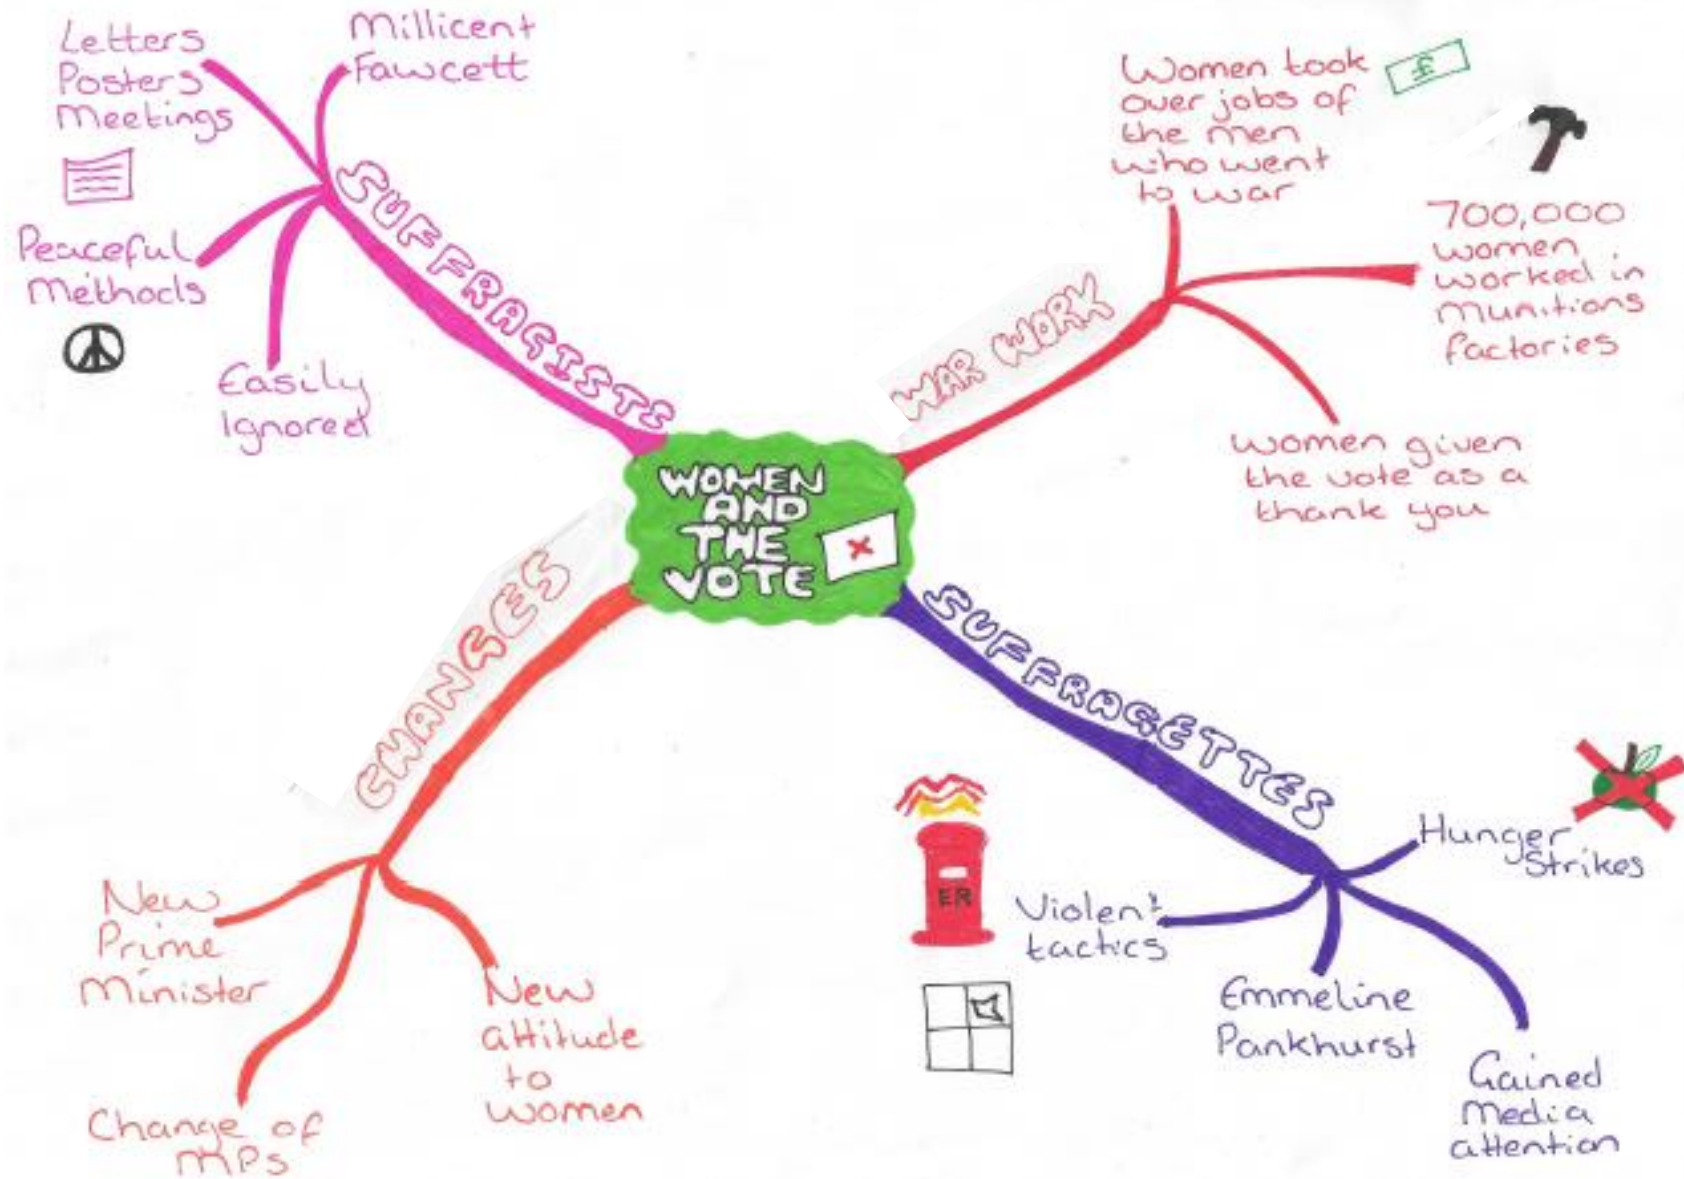 WOMEN
AND
THE
VOTE
SUFFRAGISTS
Letters
Posters
Meetings
Millicent
Fawcett
Peaceful
Methods
Easily
Ignored
WAR WORK
Women took
over jobs of
the men
who went
to war
£
700,000
women
worked in
munitions
factories
women given
the vote as a
thank you
SUFFRAGETTES
Hunger
Strikes
Violent
tactics
ER
Emmeline
Pankhurst
Gained
media
attention
CHANGES
New
Prime
Minister
Change of
MPs
New
attitude
to
women